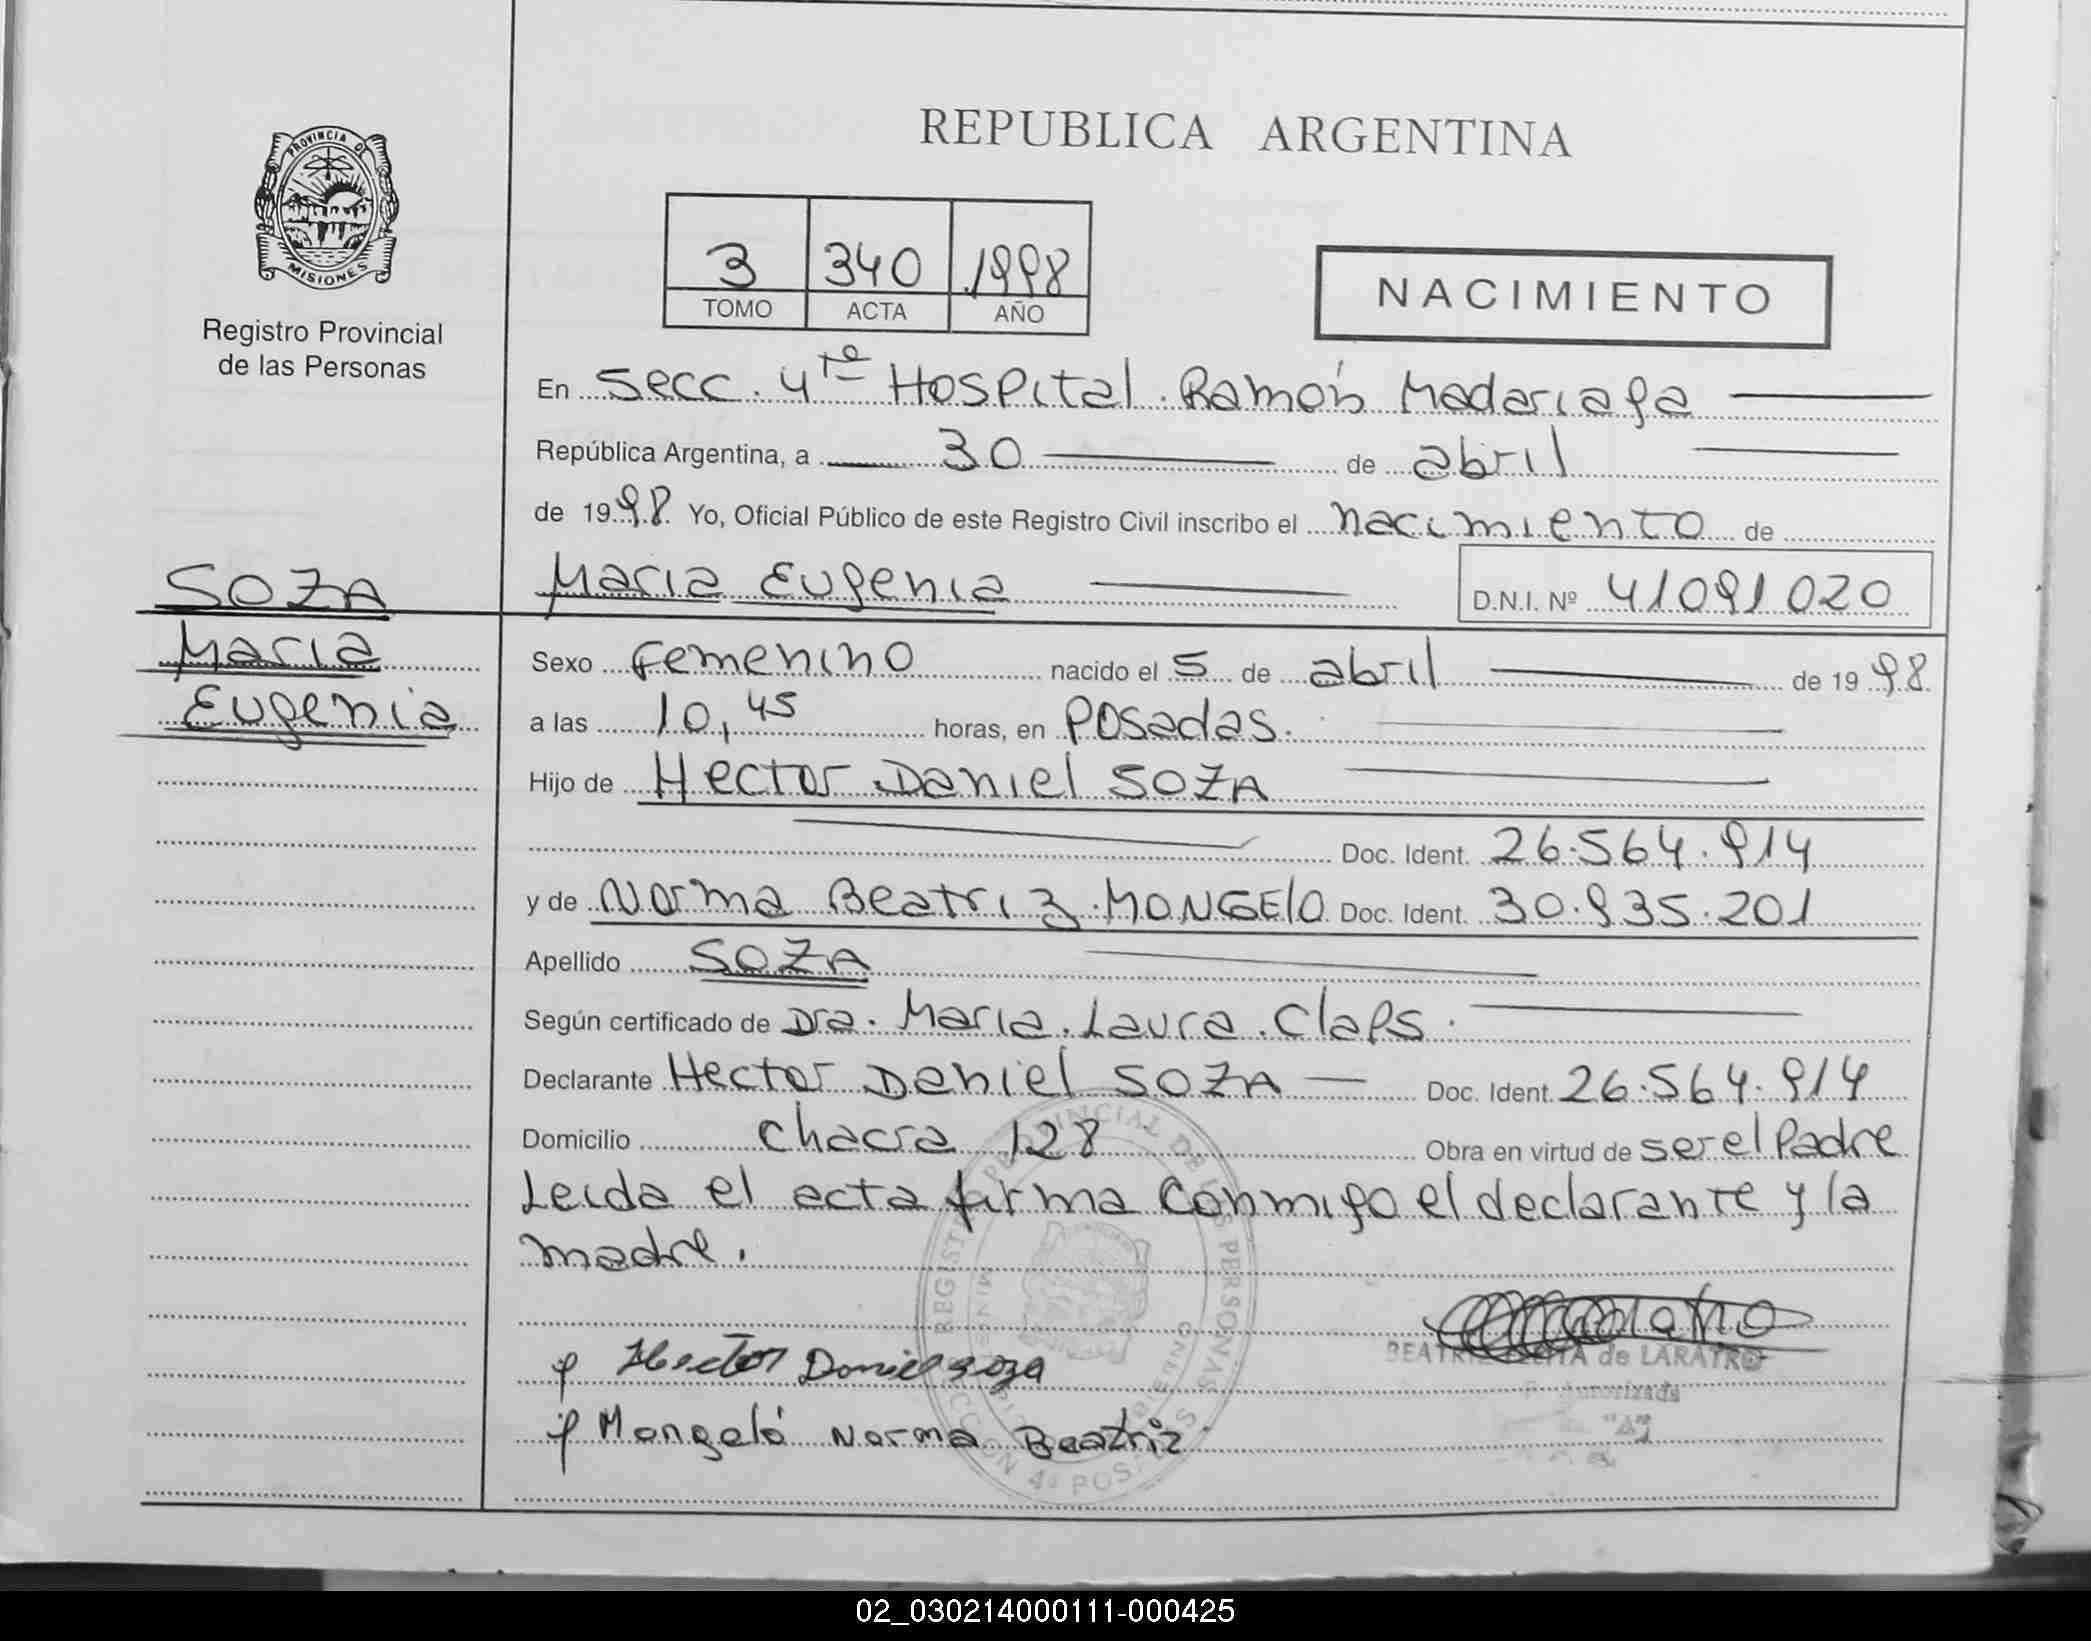 REPUBLICA ARGENTINA
PROVINCIA DE
MISIONES
Registro Provincial
de las Personas
3 340 1998
TOMO ACTA AÑO
NACIMIENTO
En Secc. 4ta Hospital Ramón Madariaga
República Argentina, a 30 de abril
de 1998 Yo, Oficial Público de este Registro Civil inscribo el nacimiento de
Maria Eugenia D.N.I. Nº 41091020
SOZA
Maria
Eugenia
Sexo femenino nacido el 5 de abril de 1998
a las 10,45 horas, en Posadas.
Hijo de Hector Daniel SOZA
Doc. Ident. 26.564.914
y de Norma Beatriz MONGELO Doc. Ident. 30.935.201
Apellido SOZA
Según certificado de Dra. Maria Laura Claps.
Declarante Hector Daniel SOZA Doc. Ident. 26.564.914
Domicilio chacra 128 Obra en virtud de ser el Padre
Leida el acta firma conmigo el declarante y la
madre.
Hector Daniel soza
Mongeló Norma Beatriz
REGISTRO PROVINCIAL DE LAS PERSONAS
SECCION 4ª POSADAS
de LARATRO
Autorizada
"A"
02_030214000111-000425